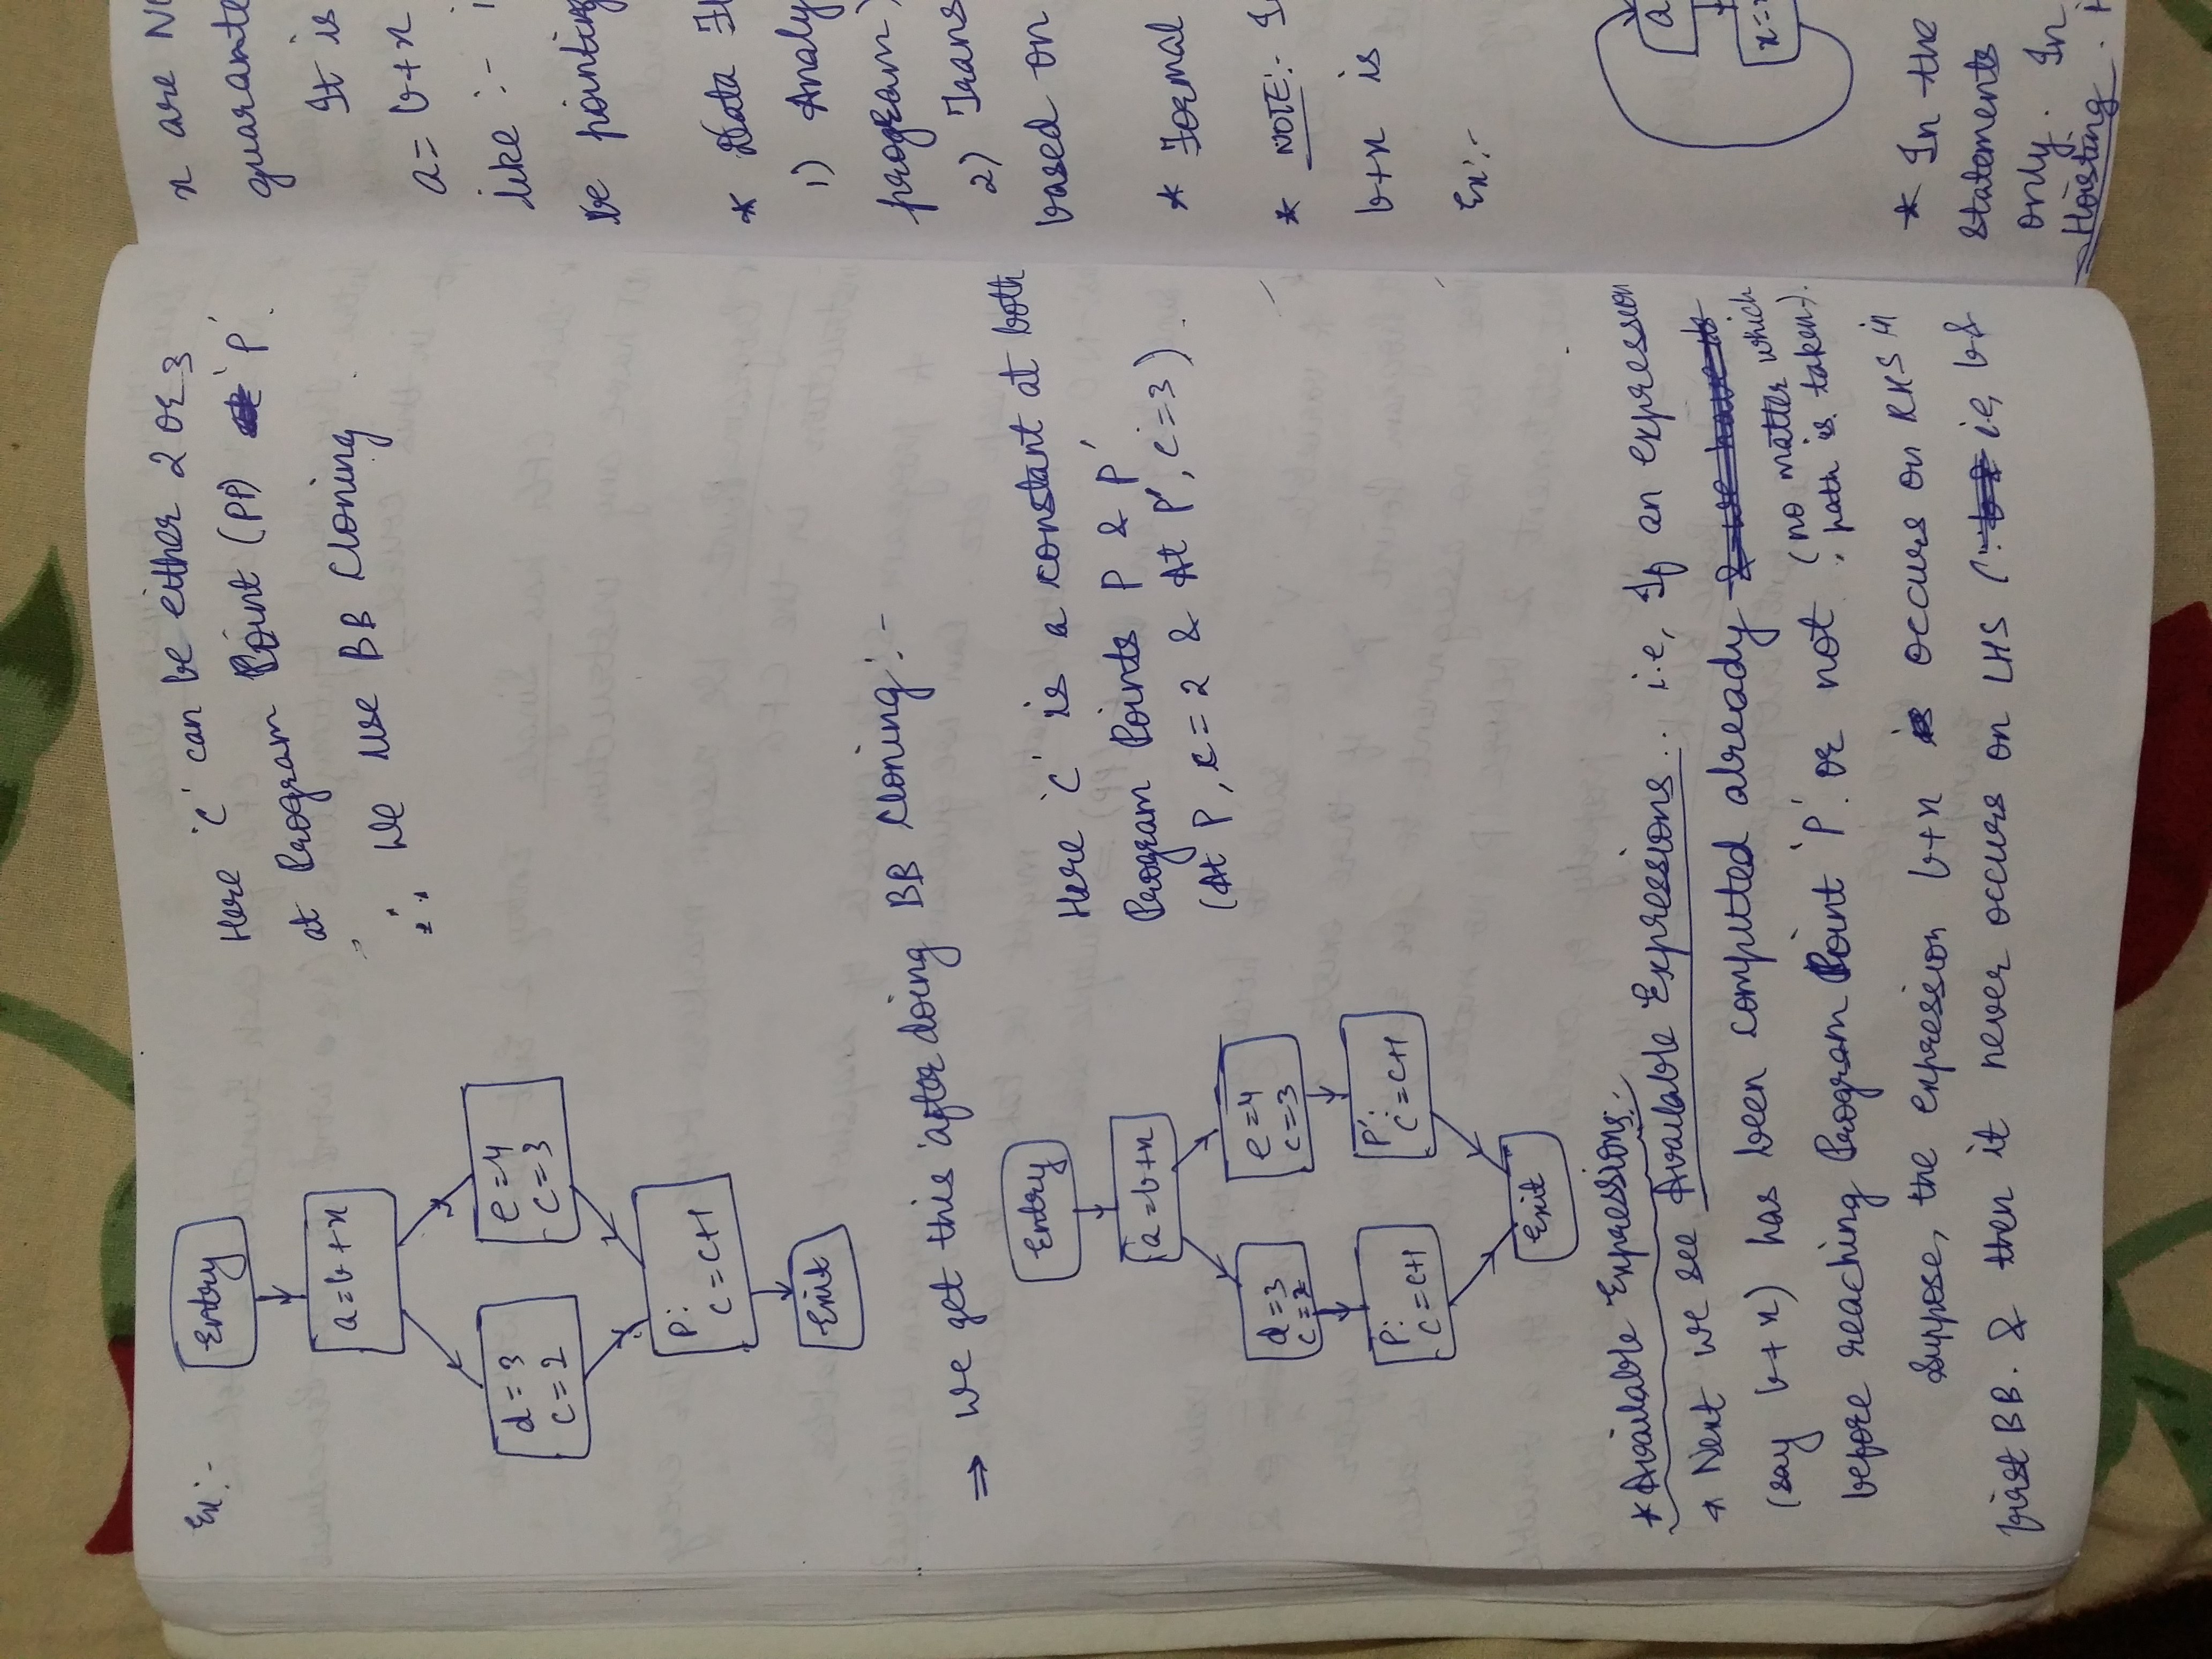 Ex:-
Entry
a=b+x
d=3
c=2
e=4
c=3
P:
c=c+1
Exit
Here 'c' can be either 2 or 3
at Program Point (PP) 'P'.
∴ We use BB Cloning.
⇒ We get this after doing BB Cloning:-
Entry
a=b+x
d=3
c=2
e=4
c=3
P:
c=c+1
P':
c=c+1
Exit
Here 'c' is a constant at both
Program Points P & P'
(At P, c=2 & At P', c=3).
*Available Expressions:-
* Next we see Available Expressions.. i.e, If an expression
(say b+x) has been computed already & we have it
before reaching Program Point 'P' or not (no matter which
path is taken).
Suppose, the expression b+x is occurs on RHS in
first BB. & then it never occurs on LHS (i.e, b &
x are
It is
a= b+x
like :-
be pointing
* Data
1)
program)
2)
based on
* Formal
* NOTE:-
b+x is
Ex:-
a
* In the
statements
only. In
Hoisting.